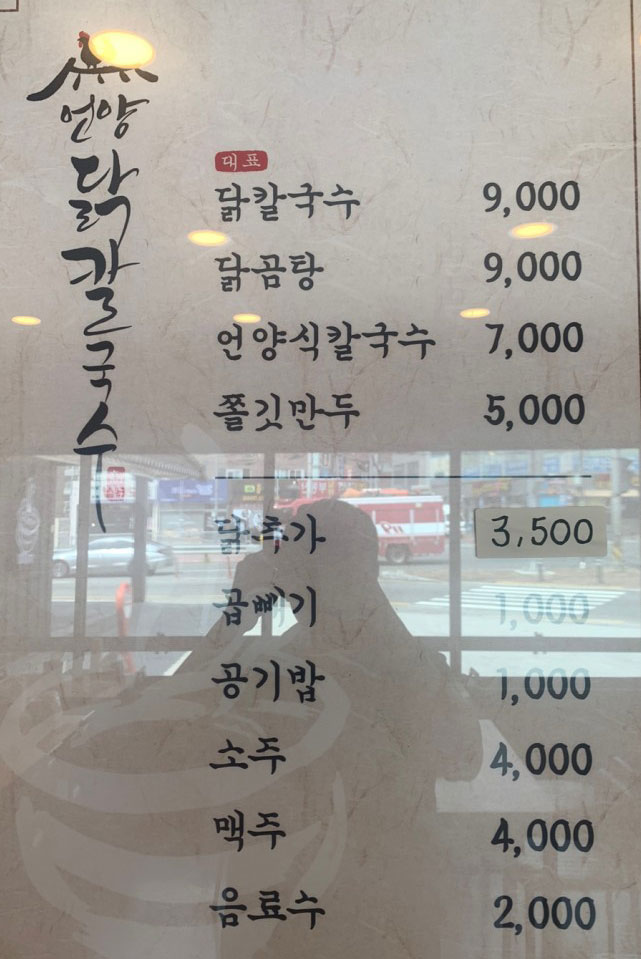 언양
닭칼국수
대표
닭칼국수 9,000
닭곰탕 9,000
언양식칼국수 7,000
쫄깃만두 5,000
닭추가 3,500
곱빼기 1,000
공기밥 1,000
소주 4,000
맥주 4,000
음료수 2,000